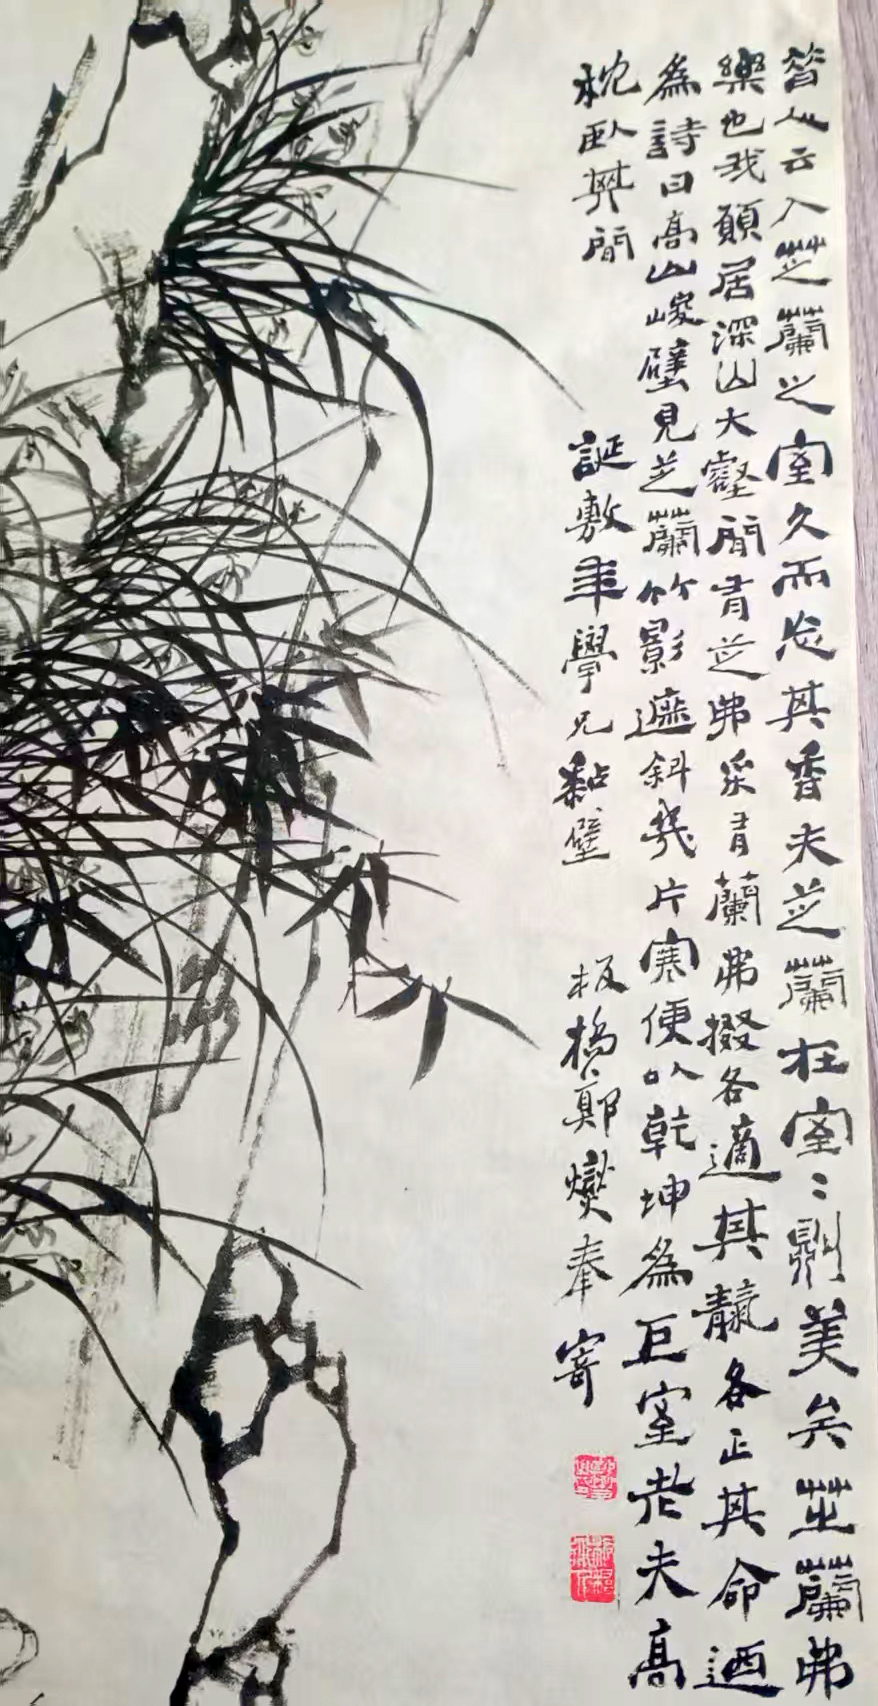 昔人云入芝蘭之室久而忘其香夫芝蘭在室室則美矣芝蘭弗
樂也我願居深山大壑間有芝弗采有蘭弗掇各適其天各全其命迺
為詩曰高山峻壁見芝蘭竹影遮斜幾片寒便以乾坤為巨室老夫高
枕臥其間
誕敷年學兄黏壁
板橋鄭燮奉寄